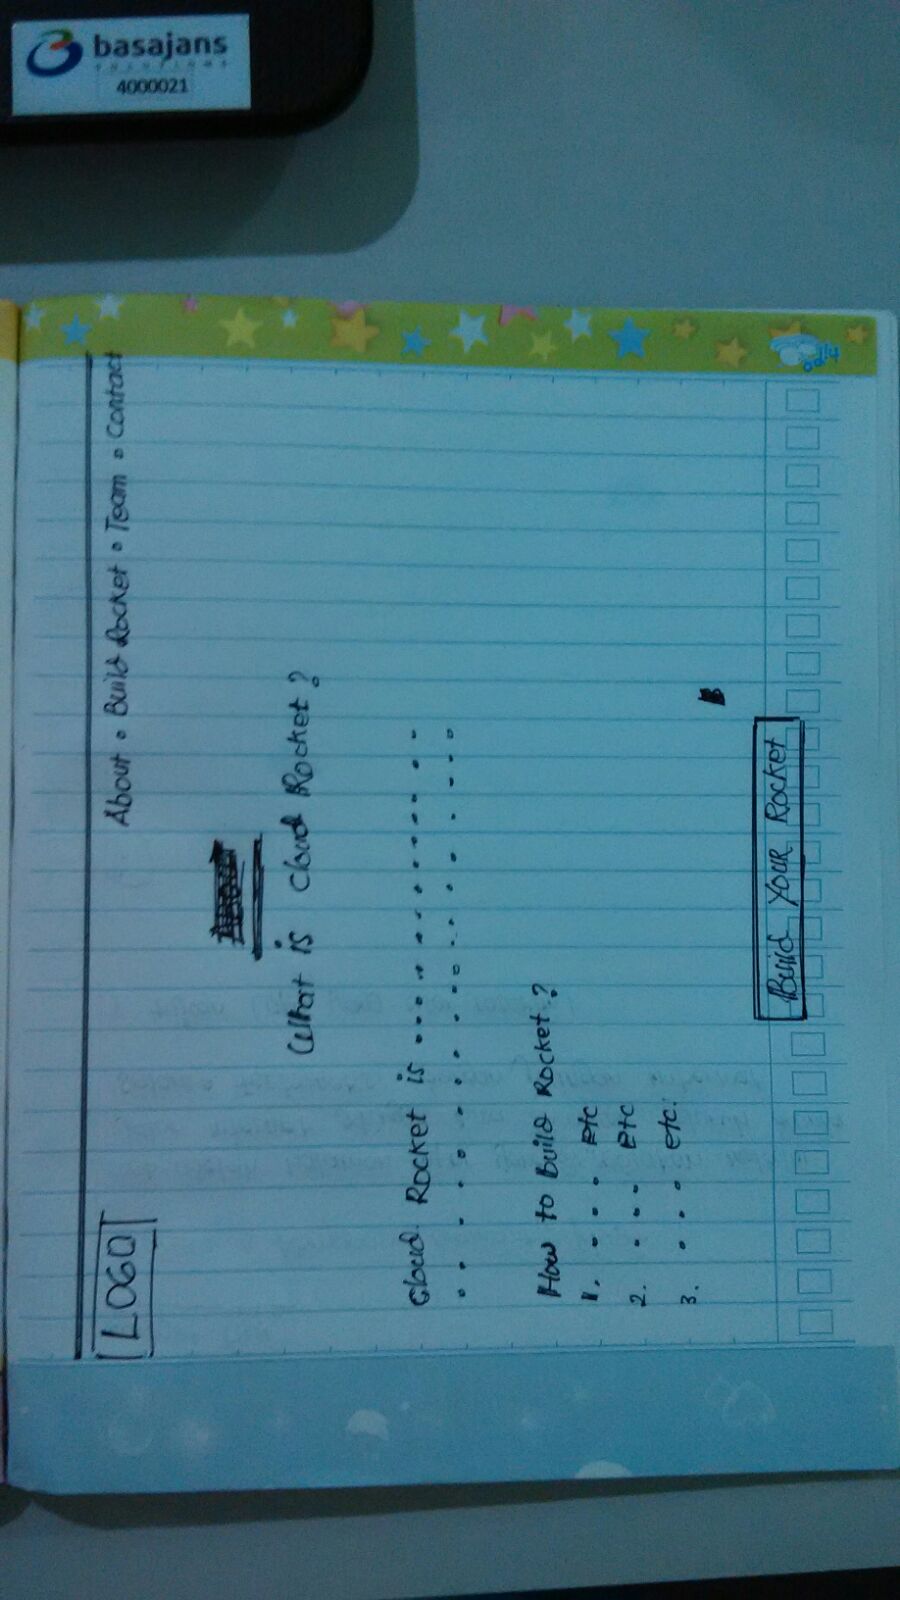 basajans
4000021
LOGO
About • Build Rocket • Team • Contact
What is Cloud Rocket?
Cloud Rocket is . . . . . . . . . . . .
. . . . . . . . . . . . . . . .
How to build Rocket?
1. . . . etc
2. . . . etc
3. . . . etc.
Build Your Rocket
hipo